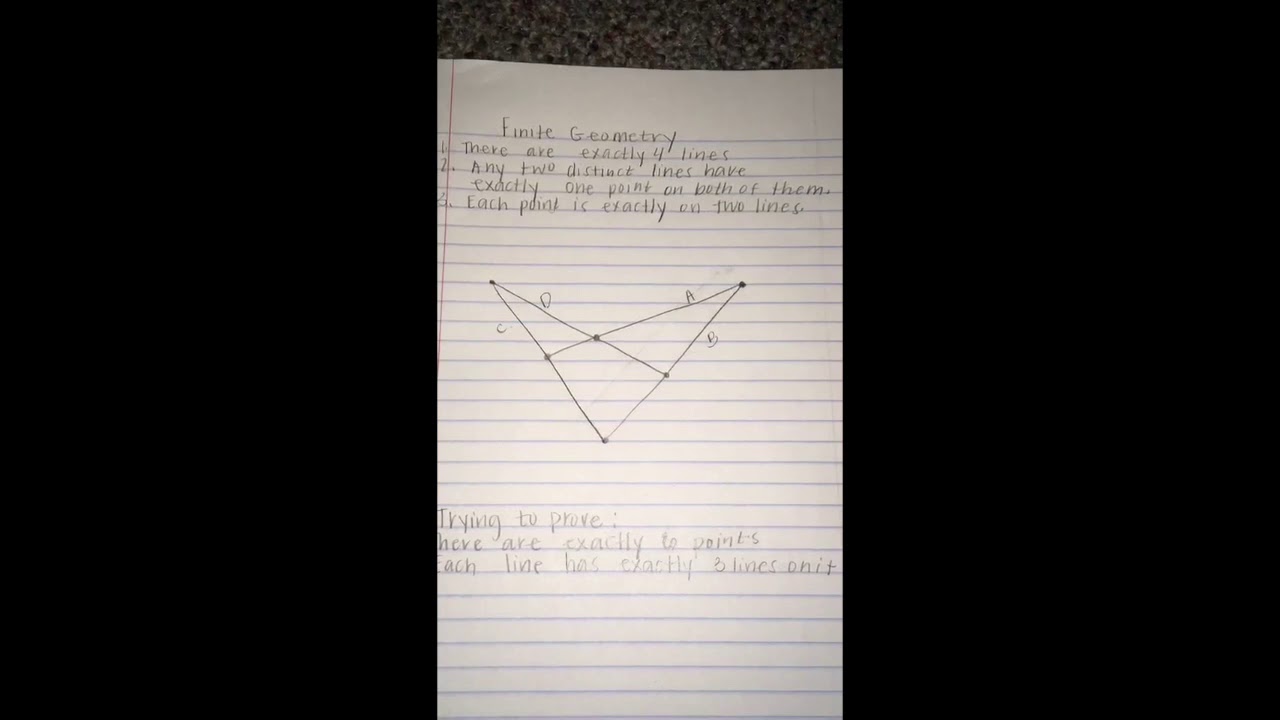 Finite Geometry
1. There are exactly 4 lines
2. Any two distinct lines have
exactly one point on both of them.
3. Each point is exactly on two lines.
D
A
C
B
Trying to prove:
here are exactly 6 points
Each line has exactly 3 lines on it